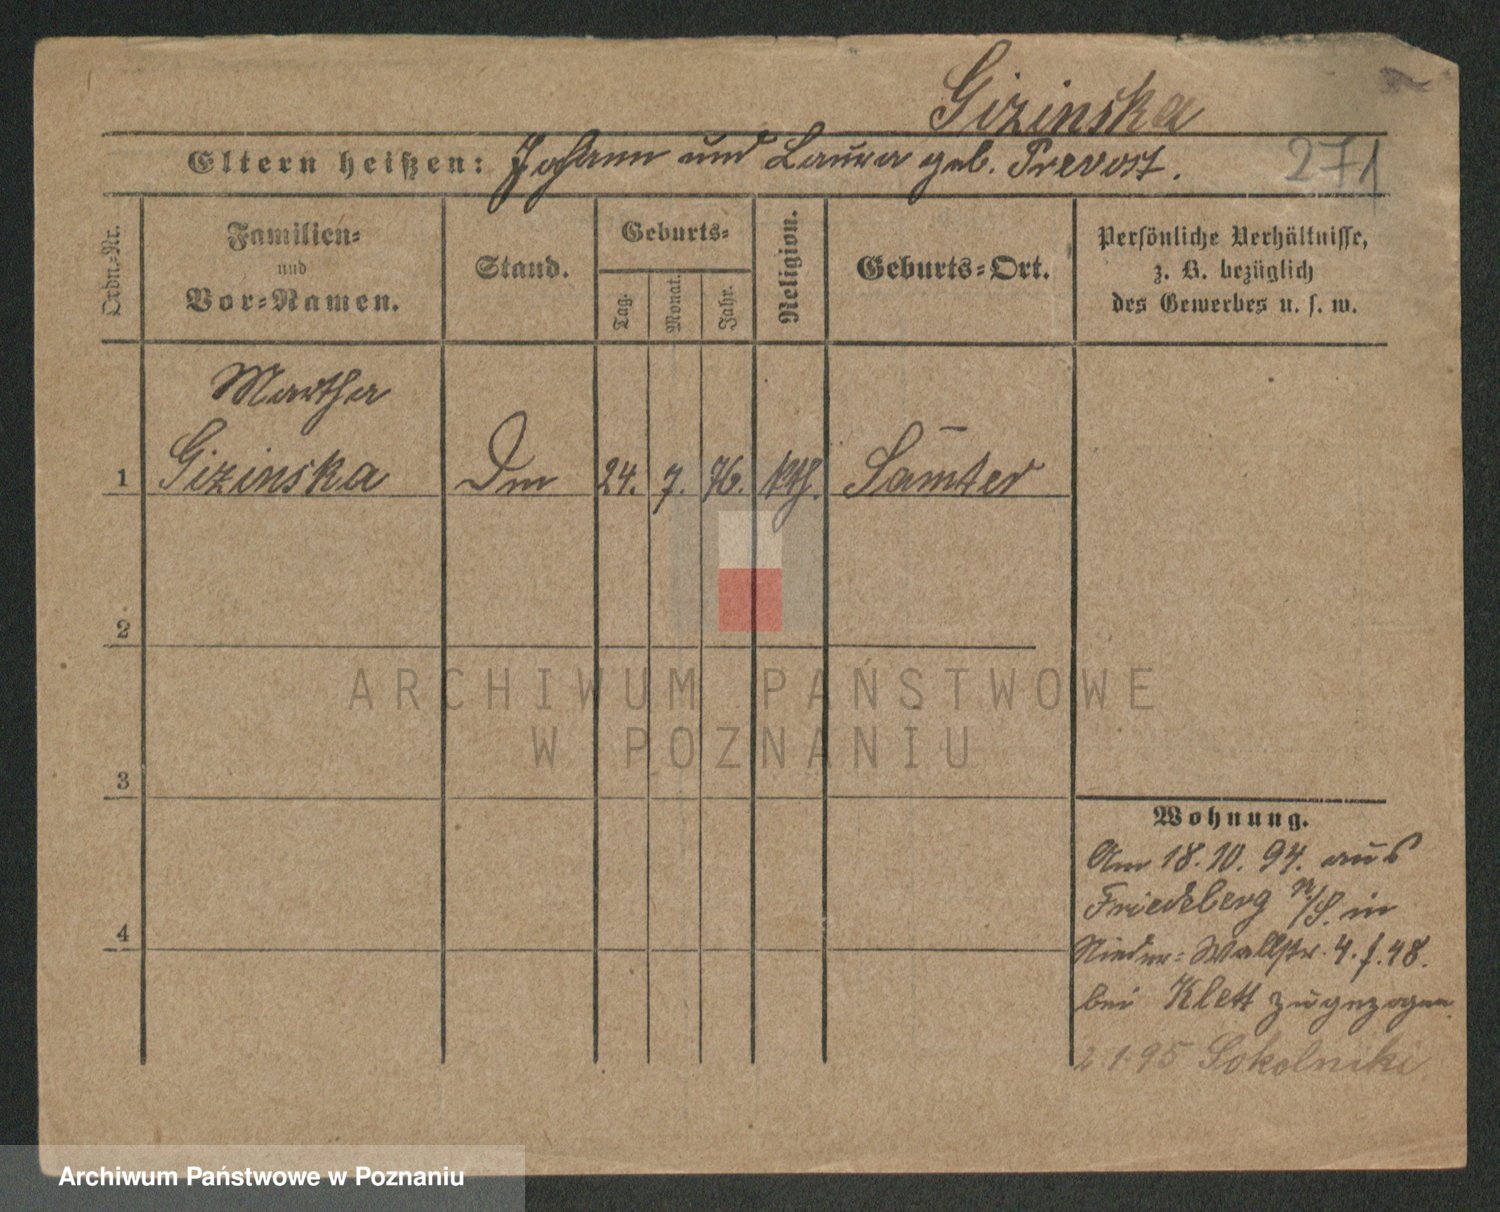 Gizinska
Eltern heißen: Johann und Laura geb. Prevost.
271
Ordn.-Nr.
Familien-
und
Vor-Namen.
Stand.
Geburts-
Tag.
Monat.
Jahr.
Religion.
Geburts-Ort.
Persönliche Verhältnisse,
z. B. bezüglich
des Gewerbes u. s. w.
Martha
1 Gizinska 24. 7. 76. kth. Samter
2
3
4
Wohnung.
Am 18.10.94. aus
Friedeberg in
Nieder-Wallstr. 4. f. 48.
bei Klett zugezogen.
2.1.95 Sokolniki
ARCHIWUM PAŃSTWOWE
W POZNANIU
Archiwum Państwowe w Poznaniu